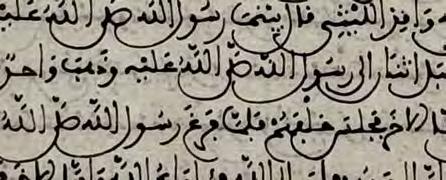 واقد الليثي قال بينما رسول الله صلى الله عليه
قبل اثنان إلى رسول الله صلى الله عليه وذهب واحد
الآخر فجلس خلفهم فلما فرغ رسول الله صلى الله